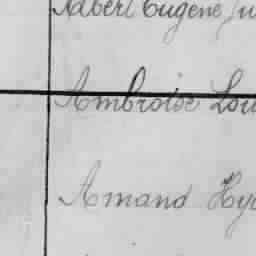 Albert Eugene Ju
Ambroise Lou
Amand Hya